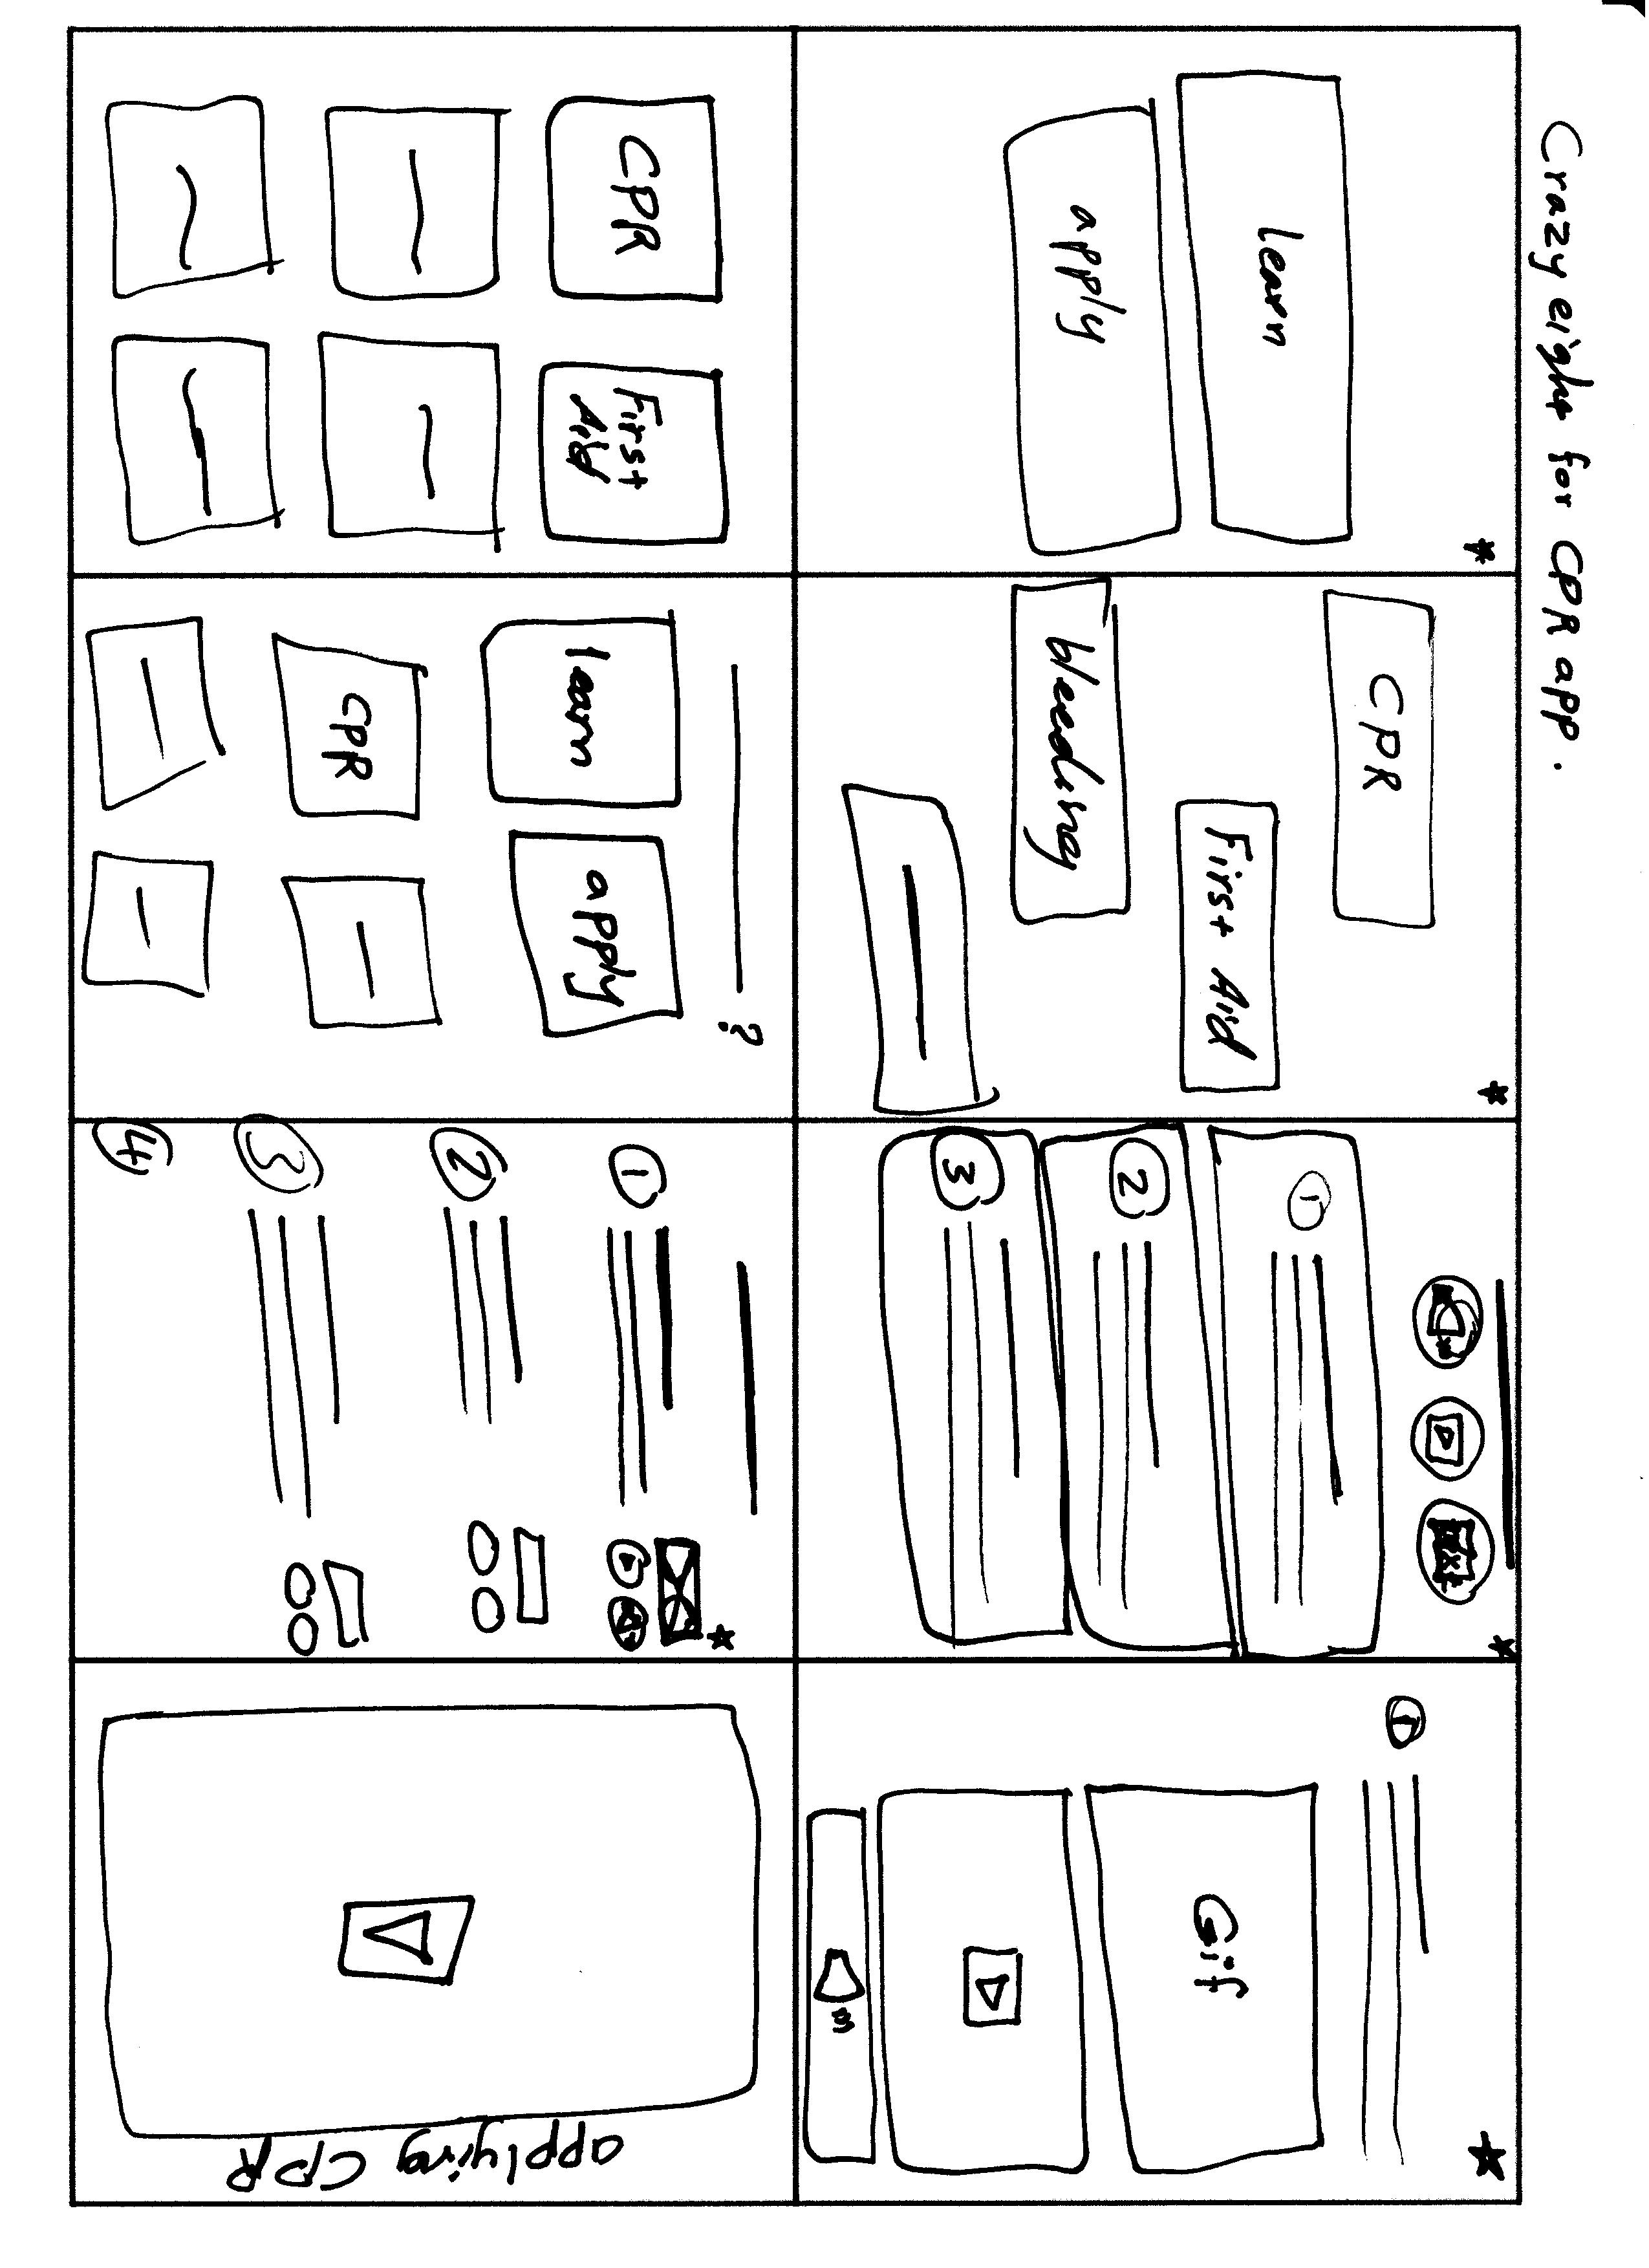 Crazy eight for CPR app.
learn
apply
CPR
First Aid
bleeding
1
2
3
1
Gif
CPR
First
Aid
?
learn
apply
CPR
1
2
3
4
applying CPR